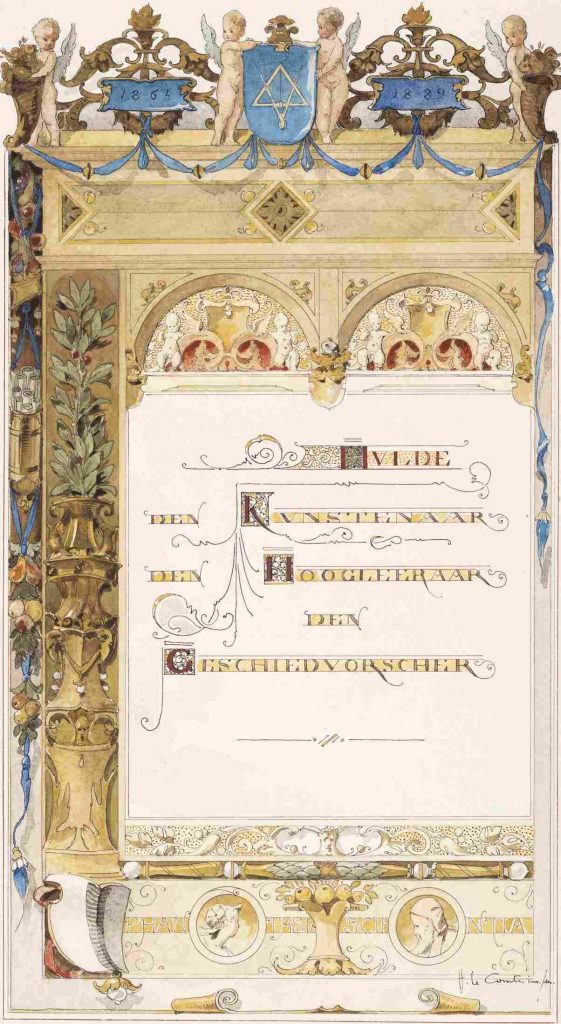 1864 1889
HVLDE
DEN KVNSTENAAR
DEN HOOGLEERAAR
DEN
GESCHIEDVORSCHER
PHAN TASIA SCIE NTIA
A. le Comte